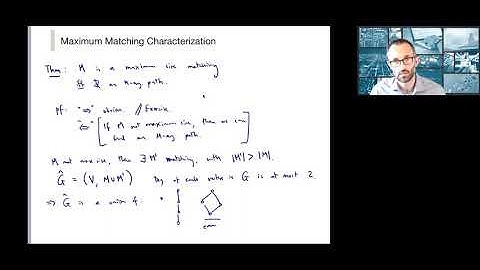 Maximum Matching Characterization
Thm: M is a maximum size matching
iff ∄ an M-aug path.
pf: "⇒" obvious. // Exercise
"⇐" [If M not maximum size, then we can
find an M-aug path.]
M not max size, then ∃ M' matching, with |M'| > |M|.
Ĝ = (V, M∪M') Deg of each vertex in G is at most 2.
⇒ Ĝ is a union of:
even